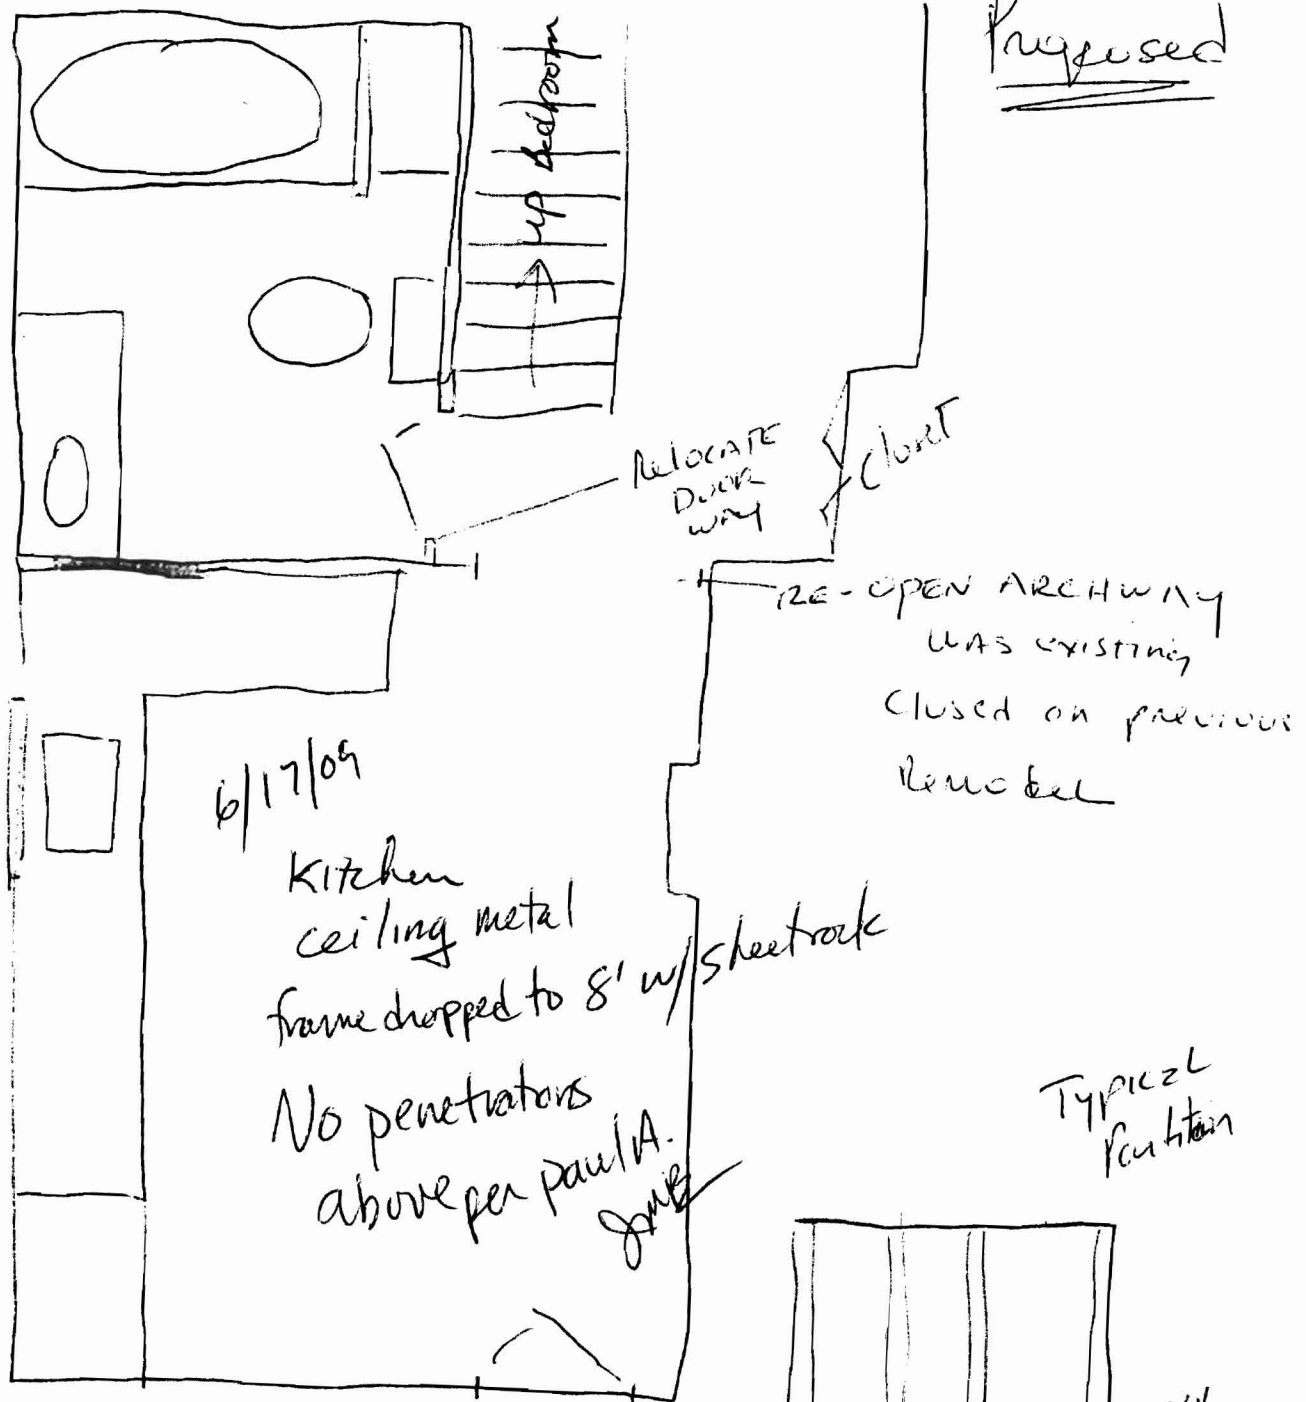 Proposed
up Bedroom
Relocate
Door
way
Closet
RE-OPEN ARCHWAY
WAS existing
Closed on previous
Remodel
6/17/09
Kitchen
ceiling metal
frame dropped to 8' w/ sheetrock
No penetrations
above per paul A.
JMB
Typical
Partition